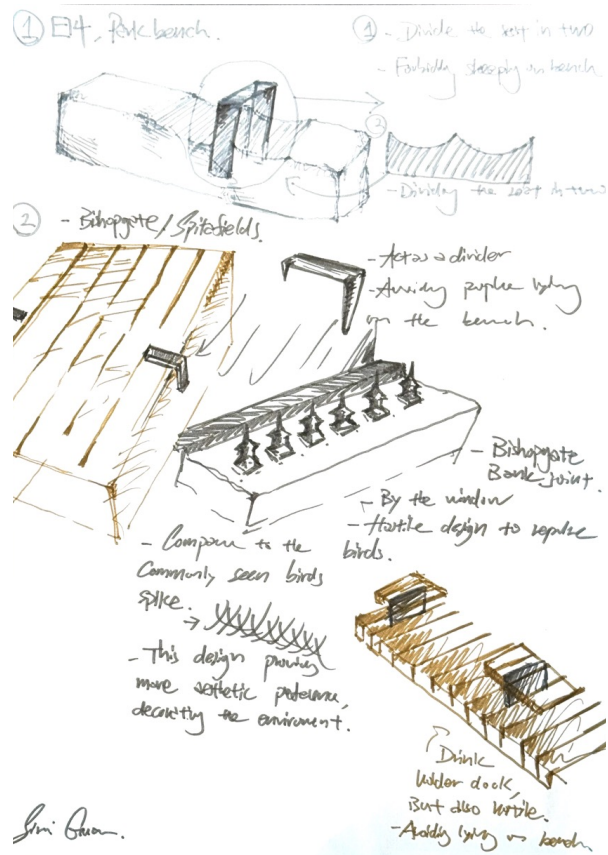 ① E14, Park bench.
① - Divide the seat in two
- Forbiddy sleeply on bench
②
- Dividy the seat in two
② - Bishopgate / Spitafields.
- Act as a divider
- Avoidy poplue lying
on the bench.
- Bishopgate
Bank joint.
- By the window
- Hostile design to repulse
birds.
- Compare to the
Commonly seen birds
spike.
- This design proving
more
decorating the environment.
Drink
holder dock,
But also hostile.
- Avoidy lying on bench